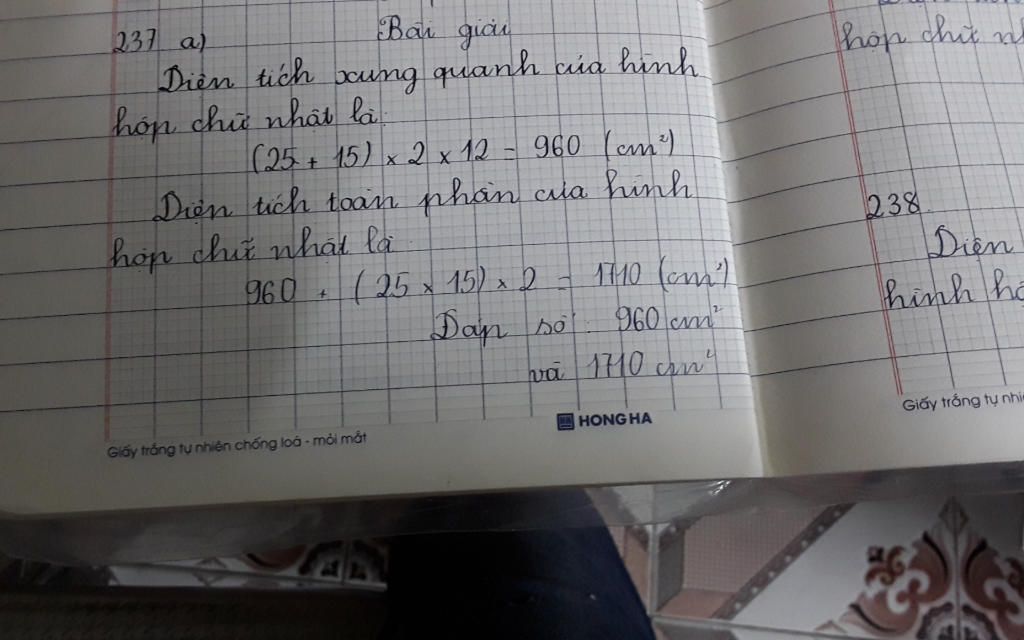 237 a) Bài giải
Diện tích xung quanh của hình
hộp chữ nhật là:
(25 + 15) × 2 × 12 = 960 (cm²)
Diện tích toàn phần của hình
hộp chữ nhật là
960 + (25 × 15) × 2 = 1710 (cm²)
Đáp số: 960 cm²
và 1710 cm²
HONG HA
Giấy trắng tự nhiên chống loá - mỏi mắt
hộp chữ
238
Diện
hình
Giấy trắng tự